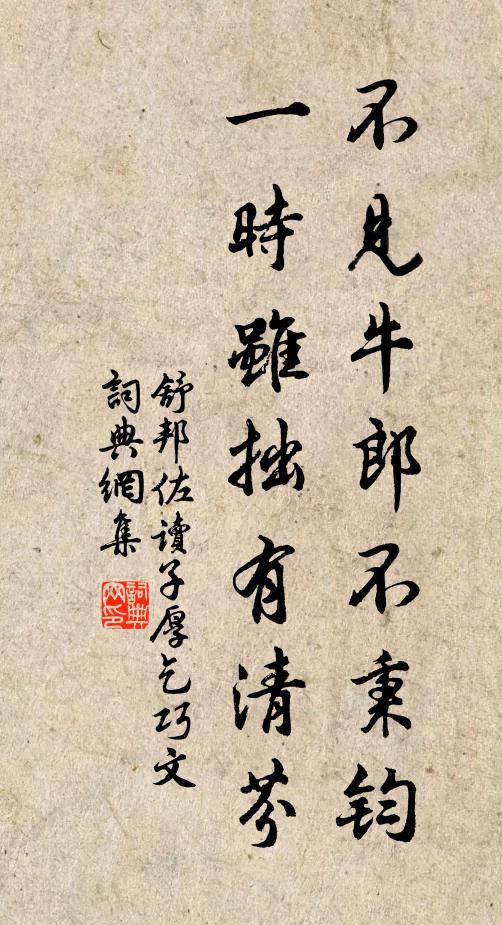 不見牛郎不秉鈞
一時雖拙有清芬
舒邦佐讀子厚乞巧文
詞典網集
詞典網印